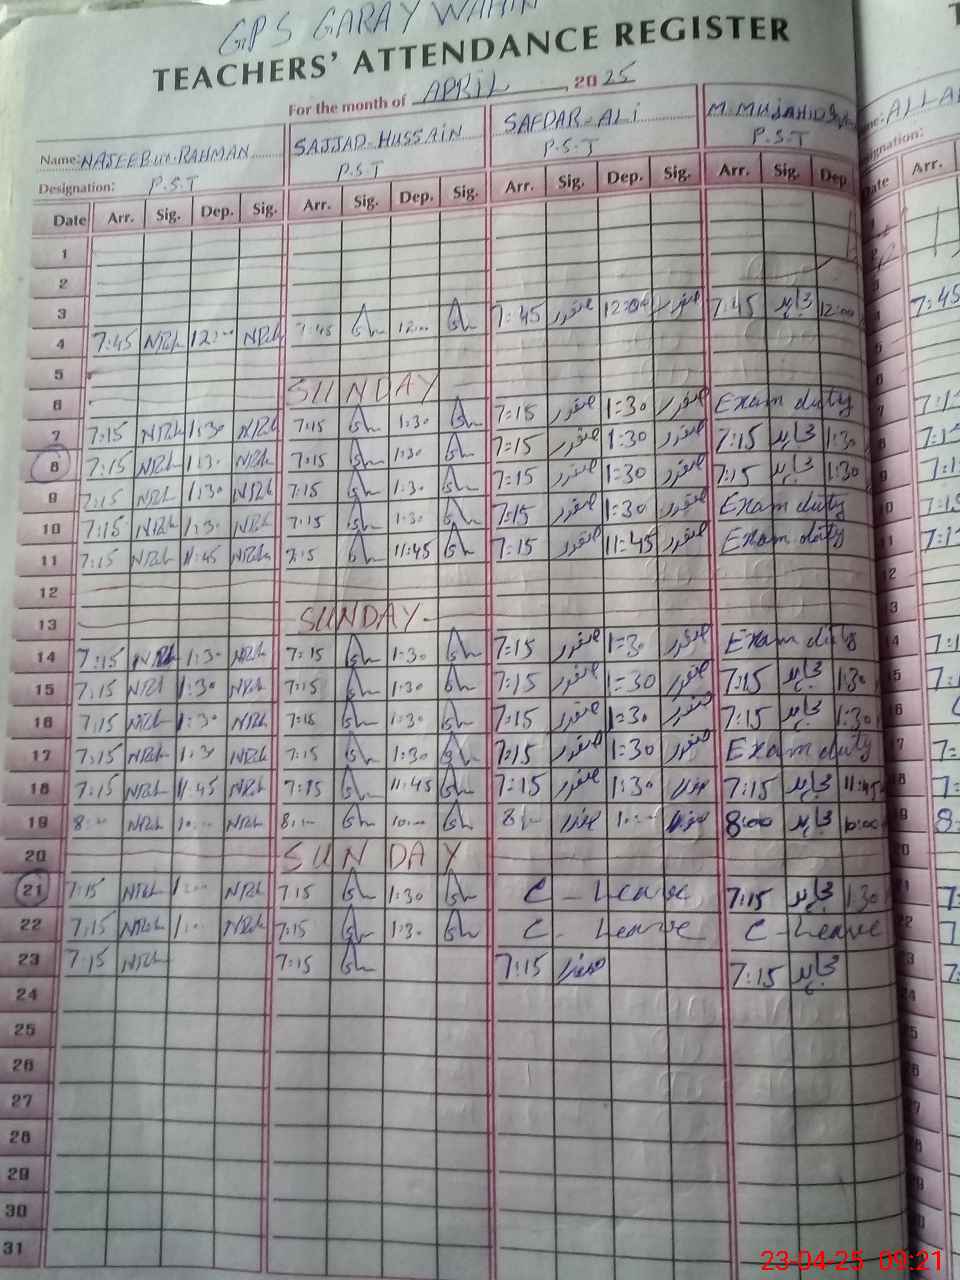 GPS GARAY WAHIN
TEACHERS' ATTENDANCE REGISTER
For the month of APRIL 2025
Name: NAJEEB UR RAHMAN SAJJAD HUSSAIN SAFDAR ALI M. MUJAHID
Designation: P.S.T P.S.T P.S.T P.S.T
Date Arr. Sig. Dep. Sig. Arr. Sig. Dep. Sig. Arr. Sig. Dep. Sig. Arr. Sig. Dep
1
2
3
4 7:45 NRh 12:00 NRh 7:45 12:00 7:45 صفدر 12:00 صفدر 7:45 مجاہد 12:00
5
6 SUNDAY
7 7:15 NRh 1:30 NRh 7:15 1:30 7:15 صفدر 1:30 صفدر Exam duty
8 7:15 NRh 1:30 NRh 7:15 1:30 7:15 صفدر 1:30 صفدر 7:15 مجاہد 1:30
9 7:15 NRh 1:30 NRh 7:15 1:30 7:15 صفدر 1:30 صفدر 7:15 مجاہد 1:30
10 7:15 NRh 1:30 NRh 7:15 1:30 7:15 صفدر 1:30 صفدر Exam duty
11 7:15 NRh 11:45 NRh 7:15 11:45 7:15 صفدر 11:45 صفدر Exam duty
12
13 SUNDAY
14 7:15 NRh 1:30 NRh 7:15 1:30 7:15 صفدر 1:30 صفدر Exam duty
15 7:15 NRh 1:30 NRh 7:15 1:30 7:15 صفدر 1:30 صفدر 7:15 مجاہد 1:30
16 7:15 NRh 1:30 NRh 7:15 1:30 7:15 صفدر 1:30 صفدر 7:15 مجاہد 1:30
17 7:15 NRh 1:30 NRh 7:15 1:30 7:15 صفدر 1:30 صفدر Exam duty
18 7:15 NRh 11:45 NRh 7:15 11:45 7:15 صفدر 1:30 صفدر 7:15 مجاہد 11:45
19 8:00 NRh 10:00 NRh 8:00 10:00 8:00 صفدر 10:00 صفدر 8:00 مجاہد 10:00
20 SUNDAY
21 7:15 NRh 1:00 NRh 7:15 1:30 C-Leave 7:15 مجاہد 1:30
22 7:15 NRh 1:00 NRh 7:15 1:30 C-Leave C-Leave
23 7:15 NRh 7:15 7:15 صفدر 7:15 مجاہد
24
25
26
27
28
29
30
31
23-04-25 09:21